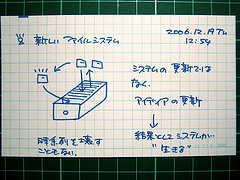 新しい ファイルシステム
2006.12.19 Tu
12:54
システムの更新では
なく.
アイディアの更新
結果としてシステムが
"生きる"
時系列を壊す
こともない.